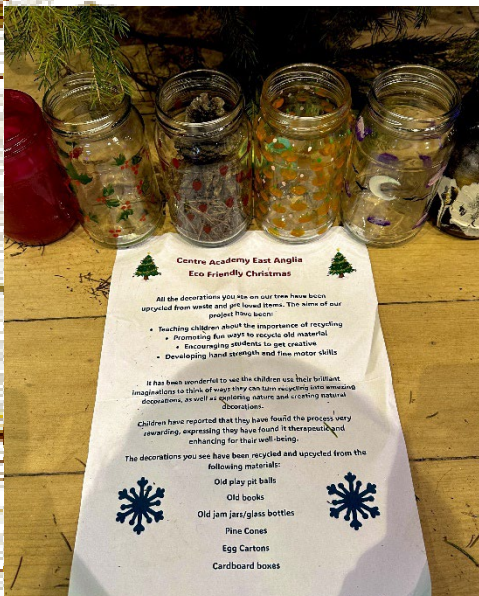 Centre Academy East Anglia
Eco Friendly Christmas
All the decorations you see on our tree have been
upcycled from waste and pre loved items. The aims of our
project have been:
• Teaching children about the importance of recycling
• Promoting fun ways to recycle old material
• Encouraging students to get creative
• Developing hand strength and fine motor skills
It has been wonderful to see the children use their brilliant
imaginations to think of ways they can turn recycling into amazing
decorations, as well as exploring nature and creating natural
decorations.
Children have reported that they have found the process very
rewarding, expressing they have found it therapeutic and
enhancing for their well-being.
The decorations you see have been recycled and upcycled from the
following materials:
Old play pit balls
Old books
Old jam jars/glass bottles
Pine Cones
Egg Cartons
Cardboard boxes